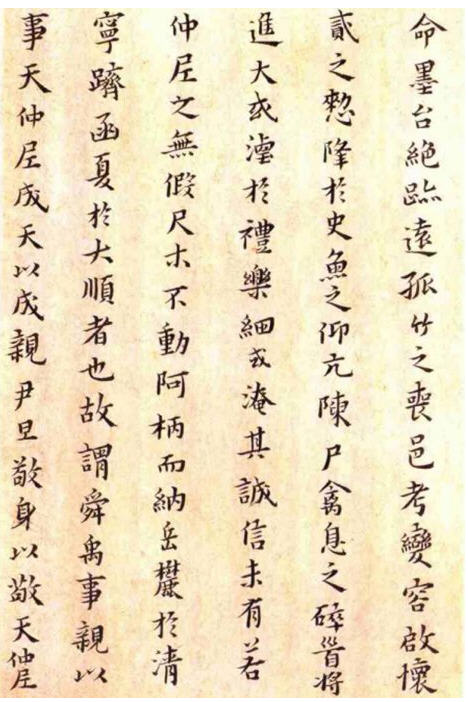 命墨台絕跡遠孤竹之喪邑考變容啟懷
貳之隆於史魚之仰亢陳尸禽息之碎首将
進大或於禮樂細或淹其誠信未有若
仲尼之無假尺木不動阿柄而納岳麓於清
寧躋函夏於大順者也故謂舜禹事親以
事天仲尼成天以成親尹旦敬身以敬天仲尼